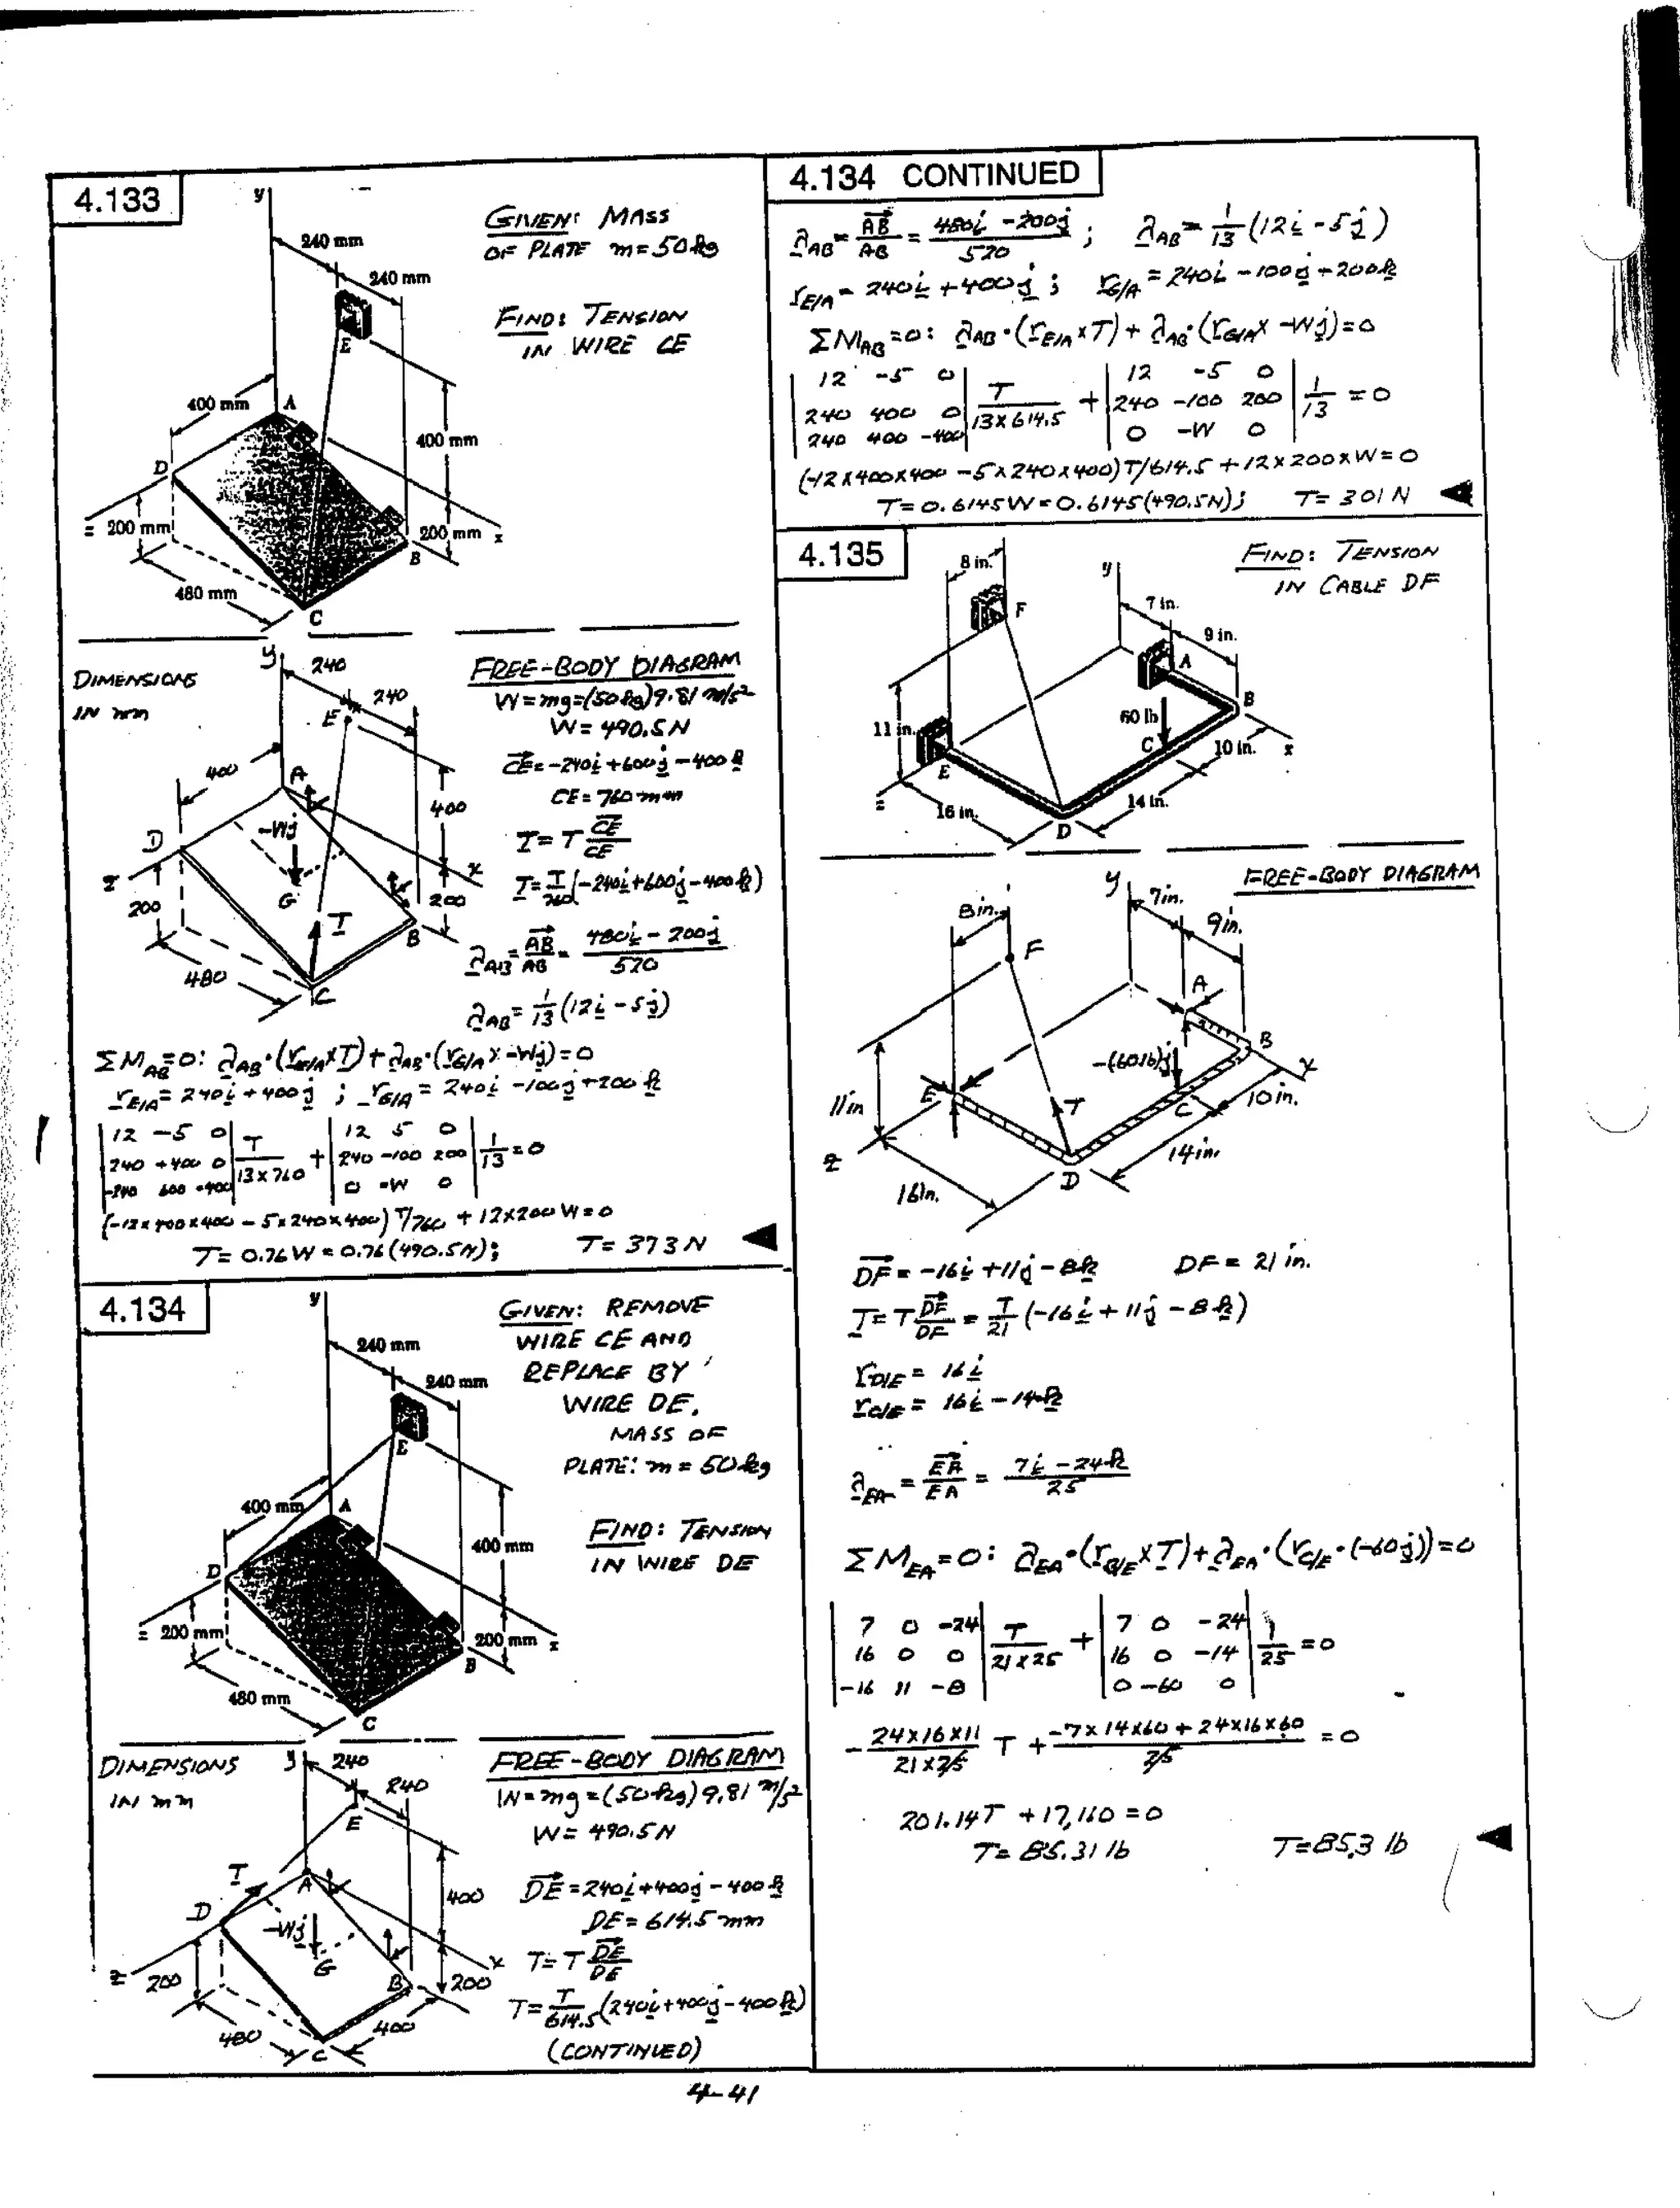 4.133
y
240 mm
240 mm
E
400 mm
A
400 mm
D
z
200 mm
200 mm
x
B
480 mm
C
GIVEN: MASS
OF PLATE m = 50 kg
FIND: TENSION
IN WIRE CE
DIMENSIONS
IN mm
y
240
240
E
400
A
400
D
-Wj
z
G
x
200
200
T
B
480
C
FREE-BODY DIAGRAM
W = mg = (50 kg) 9.81 m/s²
W = 490.5 N
CE = -240i + 600j - 400k
CE = 760 mm
T = T CE/CE
T = T/760 (-240i + 600j - 400k)
λAB = AB/AB = (480i - 200j)/520
λAB = 1/13 (12i - 5j)
ΣMAB = 0: λAB·(rE/A × T) + λAB·(rG/A × -Wj) = 0
rE/A = 240i + 400j ; rG/A = 240i - 100j + 200k
| 12 -5 0 | T | 12 5 0 | 1
| 240 +400 0 | 13×760 + | 240 -100 200 | 13 = 0
| -240 600 -400 | | 0 -W 0 |
(-12×400×400 - 5×240×400) T/760 + 12×200 W = 0
T = 0.76 W = 0.76 (490.5 N); T = 373 N
4.134
y
240 mm
240 mm
E
400 mm
A
400 mm
D
z
200 mm
200 mm
x
B
480 mm
C
GIVEN: REMOVE
WIRE CE AND
REPLACE BY
WIRE DE.
MASS OF
PLATE: m = 50 kg
FIND: TENSION
IN WIRE DE
DIMENSIONS
IN mm
y
240
240
E
T
A
400
D
-Wj
G
x
z
200
B
200
480
400
C
FREE-BODY DIAGRAM
W = mg = (50 kg) 9.81 m/s²
W = 490.5 N
DE = 240i + 400j - 400k
DE = 614.5 mm
T = T DE/DE
T = T/614.5 (240i + 400j - 400k)
(CONTINUED)
4.134 CONTINUED
λAB = AB/AB = (480i - 200j)/520 ; λAB = 1/13 (12i - 5j)
rE/A = 240i + 400j ; rG/A = 240i - 100j + 200k
ΣMAB = 0: λAB·(rE/A × T) + λAB·(rG/A × -Wj) = 0
| 12 -5 0 | T | 12 -5 0 | 1
| 240 400 0 | 13×614.5 + | 240 -100 200 | 13 = 0
| 240 400 -400 | | 0 -W 0 |
(-12×400×400 - 5×240×400) T/614.5 + 12×200×W = 0
T = 0.6145 W = 0.6145 (490.5 N); T = 301 N
4.135
FIND: TENSION
IN CABLE DF
8 in.
y
7 in.
F
9 in.
A
B
60 lb
11 in.
C
10 in.
x
E
z
16 in.
14 in.
D
FREE-BODY DIAGRAM
y
7in.
8in.
9in.
F
A
B
-(60lb)j
x
11in
E
T
C
10in.
z
14in.
16in.
D
DF = -16i + 11j - 8k DF = 21 in.
T = T DF/DF = T/21 (-16i + 11j - 8k)
rD/E = 16i
rC/E = 16i - 14k
λEA = EA/EA = (7i - 24k)/25
ΣMEA = 0: λEA·(rB/E × T) + λEA·(rC/E·(-60j)) = 0
| 7 0 -24 | T | 7 0 -24 | 1
| 16 0 0 | 21×25 + | 16 0 -14 | 25 = 0
| -16 11 -8 | | 0 -60 0 |
- (24×16×11)/(21×25) T + (-7×14×60 + 24×16×60)/25 = 0
201.14T + 17,160 = 0
T = 85.31 lb T = 85.3 lb
4-41